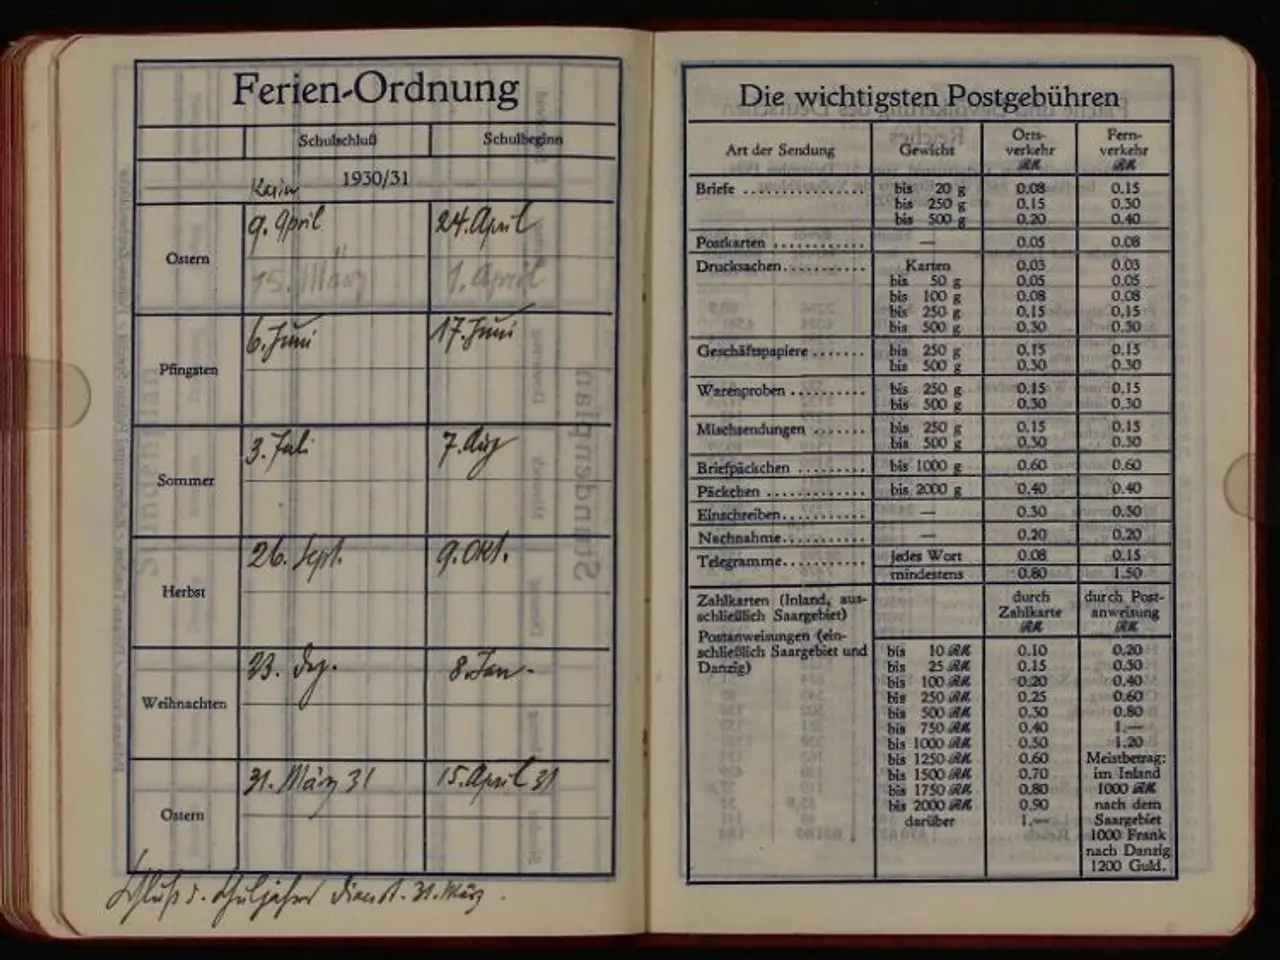 Ferien-Ordnung
Schulschluß Schulbeginn
Karin 1930/31
9. April 24. April
Ostern
15. März 1. April
6. Juni 17. Juni
Pfingsten
3. Juli 7. Aug
Sommer
26. Sept. 9. Okt.
Herbst
23. Dez. 8. Jan.
Weihnachten
31. März 31 15. April 31
Ostern
Schluß d. Schuljahres Dienst. 31. März.
Die wichtigsten Postgebühren
Art der Sendung Gewicht Orts-verkehr RM Fern-verkehr RM
Briefe bis 20 g 0.08 0.15
bis 250 g 0.15 0.30
bis 500 g 0.20 0.40
Postkarten — 0.05 0.08
Drucksachen Karten 0.03 0.03
bis 50 g 0.05 0.05
bis 100 g 0.08 0.08
bis 250 g 0.15 0.15
bis 500 g 0.30 0.30
Geschäftspapiere bis 250 g 0.15 0.15
bis 500 g 0.30 0.30
Warenproben bis 250 g 0.15 0.15
bis 500 g 0.30 0.30
Mischsendungen bis 250 g 0.15 0.15
bis 500 g 0.30 0.30
Briefpäckchen bis 1000 g 0.60 0.60
Päckchen bis 2000 g 0.40 0.40
Einschreiben — 0.30 0.30
Nachnahme — 0.20 0.20
Telegramme jedes Wort 0.08 0.15
mindestens 0.80 1.50
Zahlkarten (Inland, aus-
schließlich Saargebiet)
Postanweisungen (ein-
schließlich Saargebiet und
Danzig)
durch durch Post-
Zahlkarte anweisung
RM RM
bis 10 RM 0.10 0.20
bis 25 RM 0.15 0.30
bis 100 RM 0.20 0.40
bis 250 RM 0.25 0.60
bis 500 RM 0.30 0.80
bis 750 RM 0.40 1.—
bis 1000 RM 0.50 1.20
bis 1250 RM 0.60 Meistbetrag:
bis 1500 RM 0.70 im Inland
bis 1750 RM 0.80 1000 RM
bis 2000 RM 0.90 nach dem
darüber 1.— Saargebiet
1000 Frank
nach Danzig
1200 Guld.